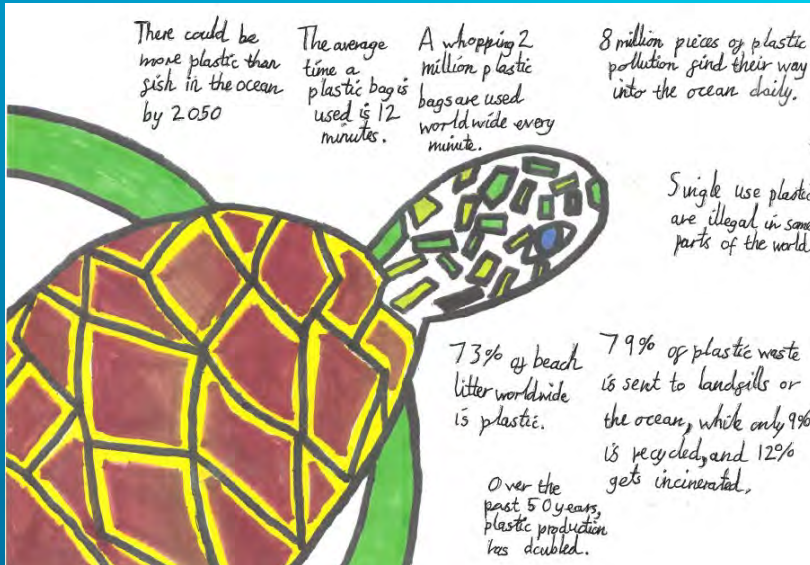 There could be
more plastic than
fish in the ocean
by 2050
The average
time a
plastic bag is
used is 12
minutes.
A whopping 2
million plastic
bags are used
worldwide every
minute.
8 million pieces of plastic
pollution find their way
into the ocean daily.
Single use plastic
are illegal in some
parts of the world
73% of beach
litter worldwide
is plastic.
79% of plastic waste
is sent to landfills or
the ocean, while only 9%
is recycled, and 12%
gets incinerated.
Over the
past 50 years,
plastic production
has doubled.